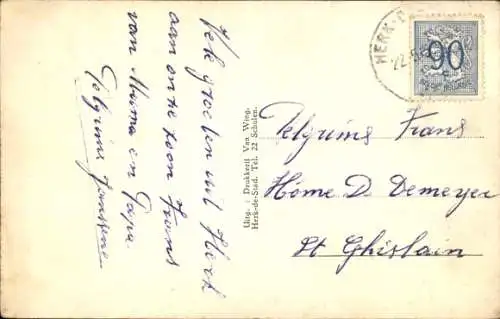 Vele groeten uit Herk
aan onze zoon Frans
van Mama en Papa
Pelgrims Janssens
Uitg. : Drukkerij Van Wing,
Herk-de-Stad. Tel. 22 Schulen.
HERK-D
22-5
90
Pelgrims Frans
Home D. Demeyer
St Ghislain